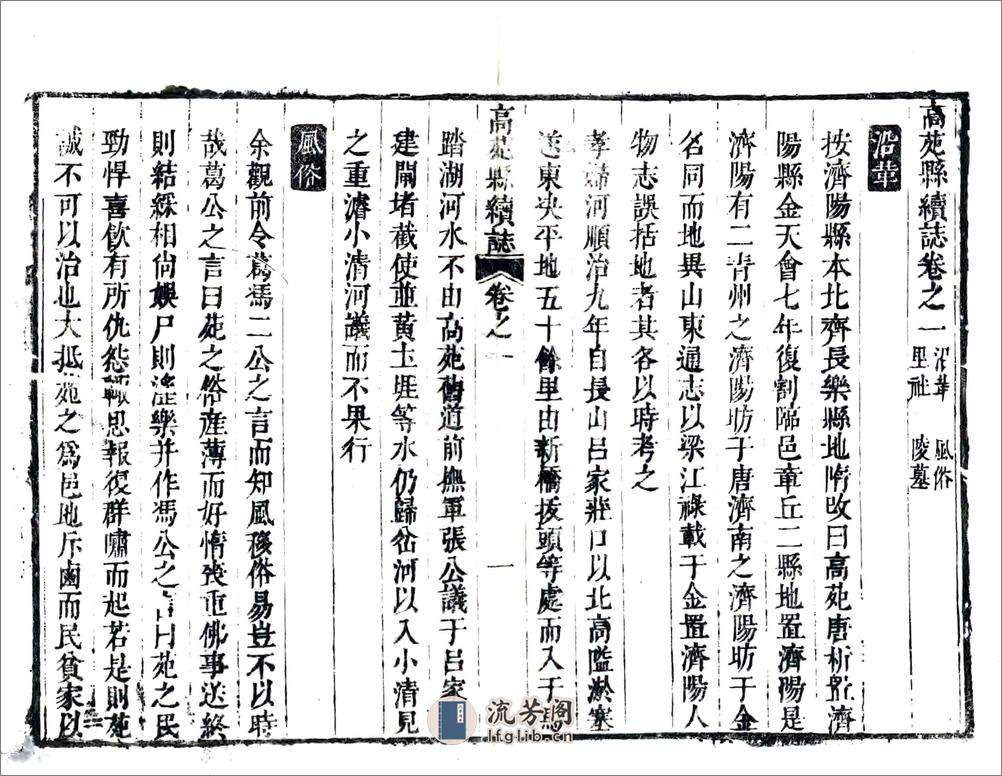 高苑縣續誌卷之一 沿革 風俗
里社 陵墓
沿革
按濟陽縣本北齊長樂縣地隋改曰高苑唐析置濟
陽縣金天會七年復割臨邑章丘二縣地置濟陽是
濟陽有二青州之濟陽昉于唐濟南之濟陽昉于金
名同而地異山東通志以梁江祿載于金置濟陽人
物志誤括地者其各以時考之
孝婦河順治九年自長山呂家莊口以北高隘淤塞
遂東決平地五十餘里由新橋拔頭等處而入于
高苑縣續誌 卷之一 一
踏湖河水不由高苑舊道前撫軍張公議于呂家
建閘堵截使並黃土堐等水仍歸岔河以入小清見
之重濬小清河議而不果行
風俗
余觀前令葛馮二公之言而知風移俗易豈不以時
哉葛公之言曰苑之俗産薄而好惰喪重佛事送終
則結綵相尚娛尸則淫樂并作馮公之言曰苑之民
勁悍喜飲有所仇怨輒思報復群嘯而起若是則苑
誠不可以治也大抵苑之為邑地斥鹵而民貧家以
流芳阁
lfglib.cn